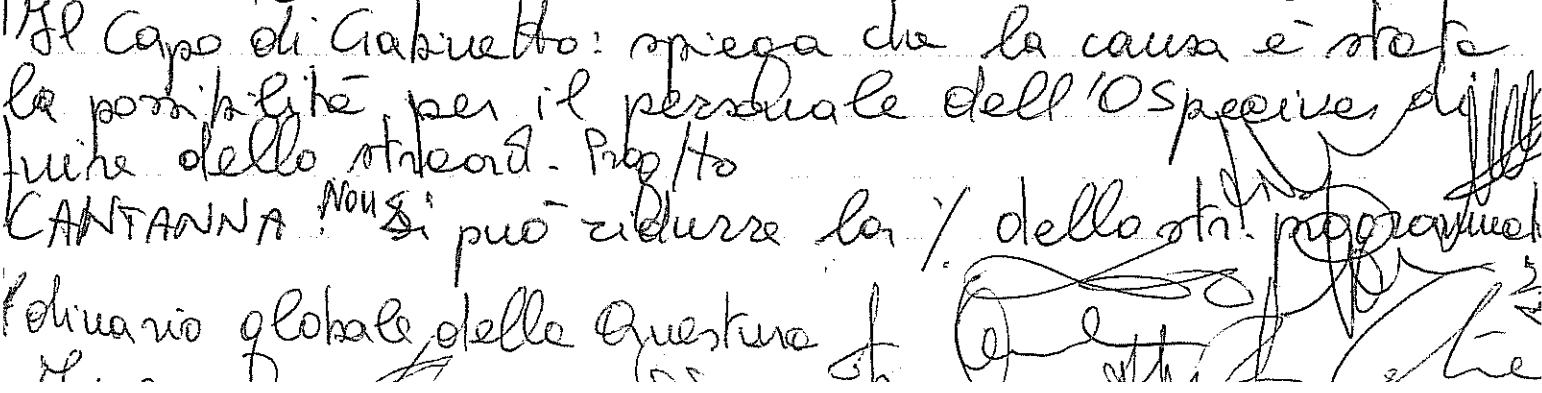 Il Capo di Gabinetto: spiega che la causa è stata
la possibilità per il personale dell'O di
dello straord. Prog/to
CANTANNA: Non si può ridurre la % dello str. programmat
dinario globale della Questura